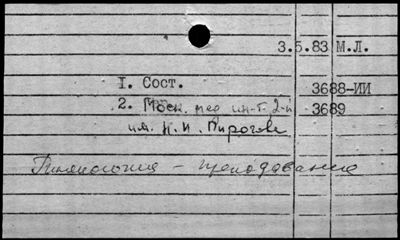 3.5.83 М.Л.
I. Сост. 3688-ИИ
2. Моск. мед ин-т. 2-й 3689
им. Н.И. Пирогова
– преподавание